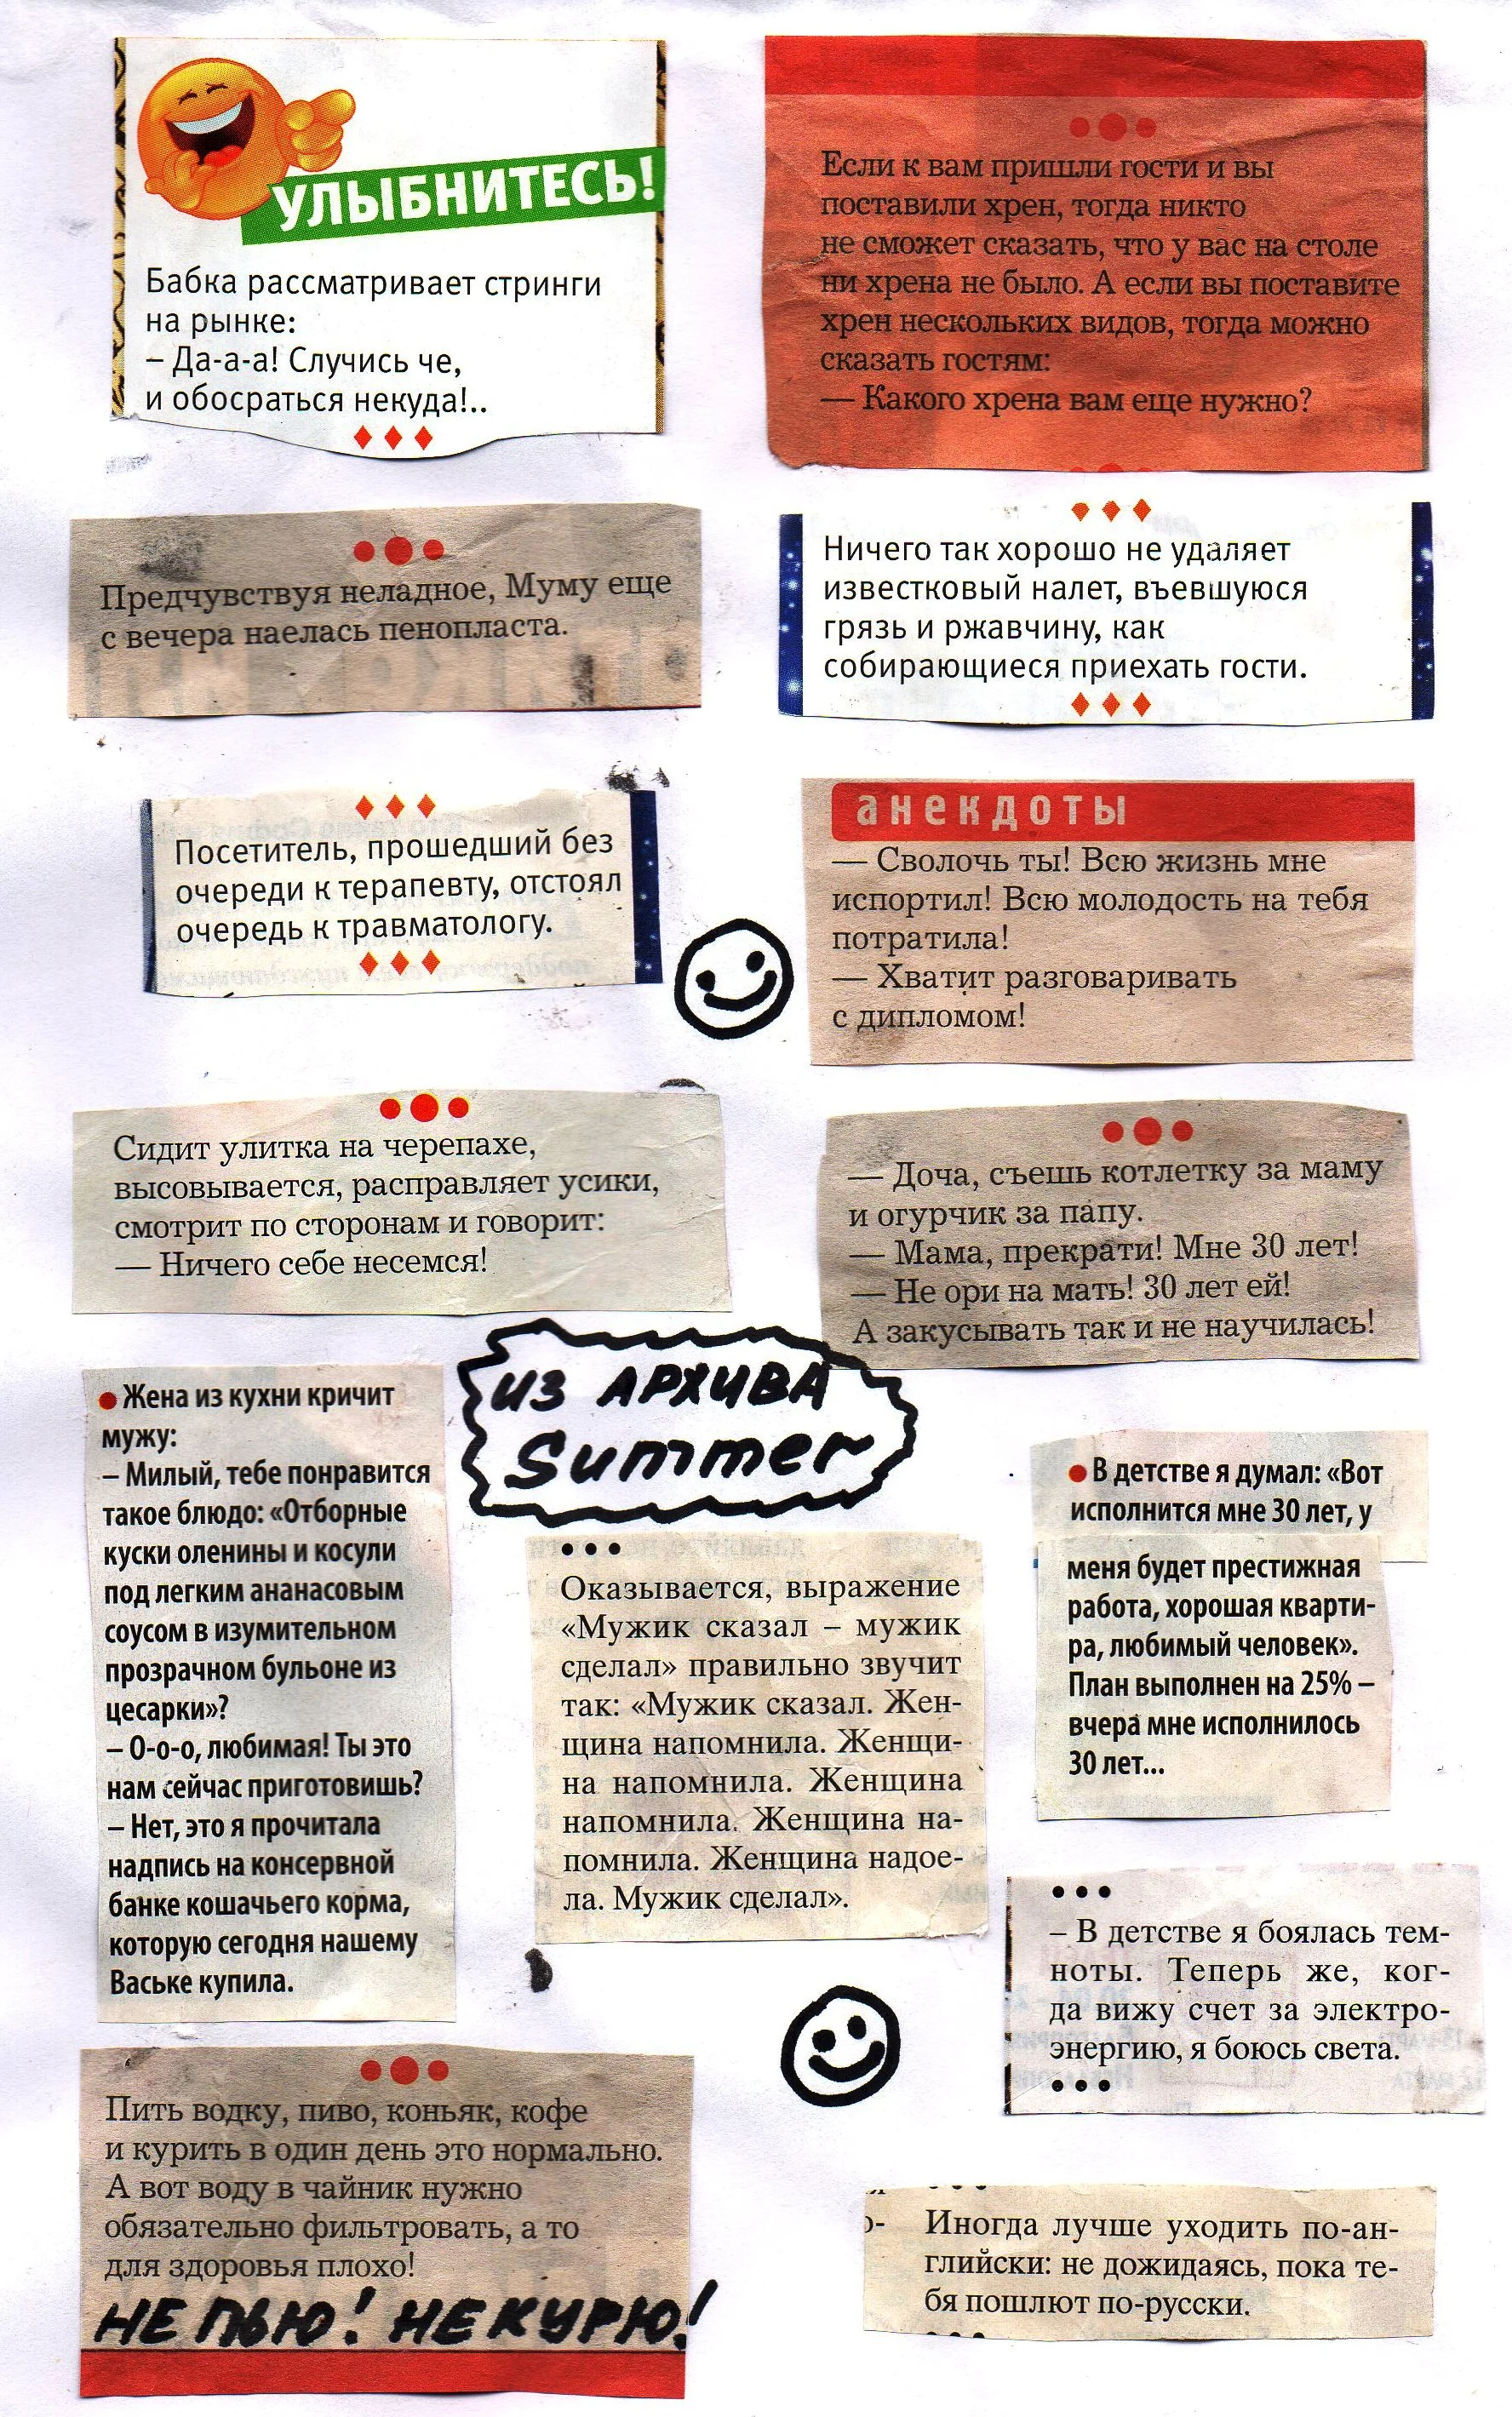 УЛЫБНИТЕСЬ!
Бабка рассматривает стринги
на рынке:
– Да-а-а! Случись че,
и обосраться некуда!..
Если к вам пришли гости и вы
поставили хрен, тогда никто
не сможет сказать, что у вас на столе
ни хрена не было. А если вы поставите
хрен нескольких видов, тогда можно
сказать гостям:
— Какого хрена вам еще нужно?
Предчувствуя неладное, Муму еще
с вечера наелась пенопласта.
Ничего так хорошо не удаляет
известковый налет, въевшуюся
грязь и ржавчину, как
собирающиеся приехать гости.
Посетитель, прошедший без
очереди к терапевту, отстоял
очередь к травматологу.
анекдоты
— Сволочь ты! Всю жизнь мне
испортил! Всю молодость на тебя
потратила!
— Хватит разговаривать
с дипломом!
Сидит улитка на черепахе,
высовывается, расправляет усики,
смотрит по сторонам и говорит:
— Ничего себе несемся!
— Доча, съешь котлетку за маму
и огурчик за папу.
— Мама, прекрати! Мне 30 лет!
— Не ори на мать! 30 лет ей!
А закусывать так и не научилась!
ИЗ АРХИВА
Summer
● Жена из кухни кричит
мужу:
– Милый, тебе понравится
такое блюдо: «Отборные
куски оленины и косули
под легким ананасовым
соусом в изумительном
прозрачном бульоне из
цесарки»?
– О-о-о, любимая! Ты это
нам сейчас приготовишь?
– Нет, это я прочитала
надпись на консервной
банке кошачьего корма,
которую сегодня нашему
Ваське купила.
Оказывается, выражение
«Мужик сказал – мужик
сделал» правильно звучит
так: «Мужик сказал. Жен-
щина напомнила. Женщи-
на напомнила. Женщина
напомнила. Женщина на-
помнила. Женщина надое-
ла. Мужик сделал».
● В детстве я думал: «Вот
исполнится мне 30 лет, у
меня будет престижная
работа, хорошая кварти-
ра, любимый человек».
План выполнен на 25% –
вчера мне исполнилось
30 лет...
– В детстве я боялась тем-
ноты. Теперь же, ког-
да вижу счет за электро-
энергию, я боюсь света.
Пить водку, пиво, коньяк, кофе
и курить в один день это нормально.
А вот воду в чайник нужно
обязательно фильтровать, а то
для здоровья плохо!
НЕ ПЬЮ! НЕ КУРЮ!
Иногда лучше уходить по-ан-
глийски: не дожидаясь, пока те-
бя пошлют по-русски.